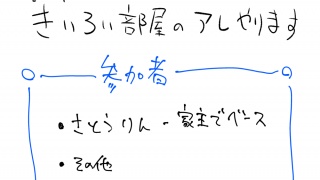 きいろい部屋のアレやります
参加者
・さとうりん - 家主でベース
・その他